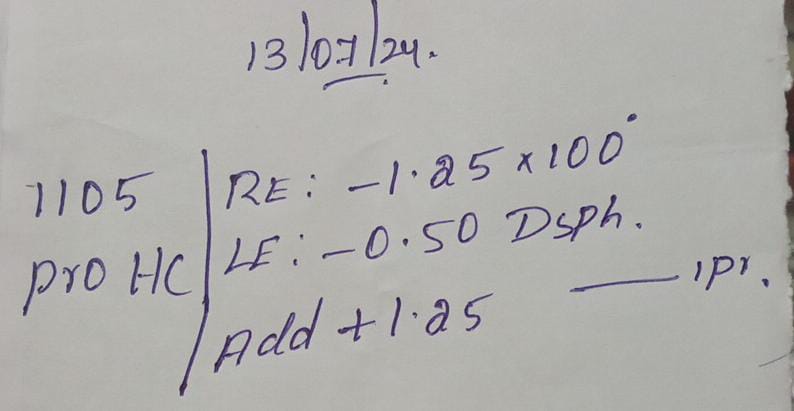 13/07/24.
1105
Pro HC
RE: -1.25 x 100°
LE: -0.50 Dsph.
Add +1.25 — 1pr.